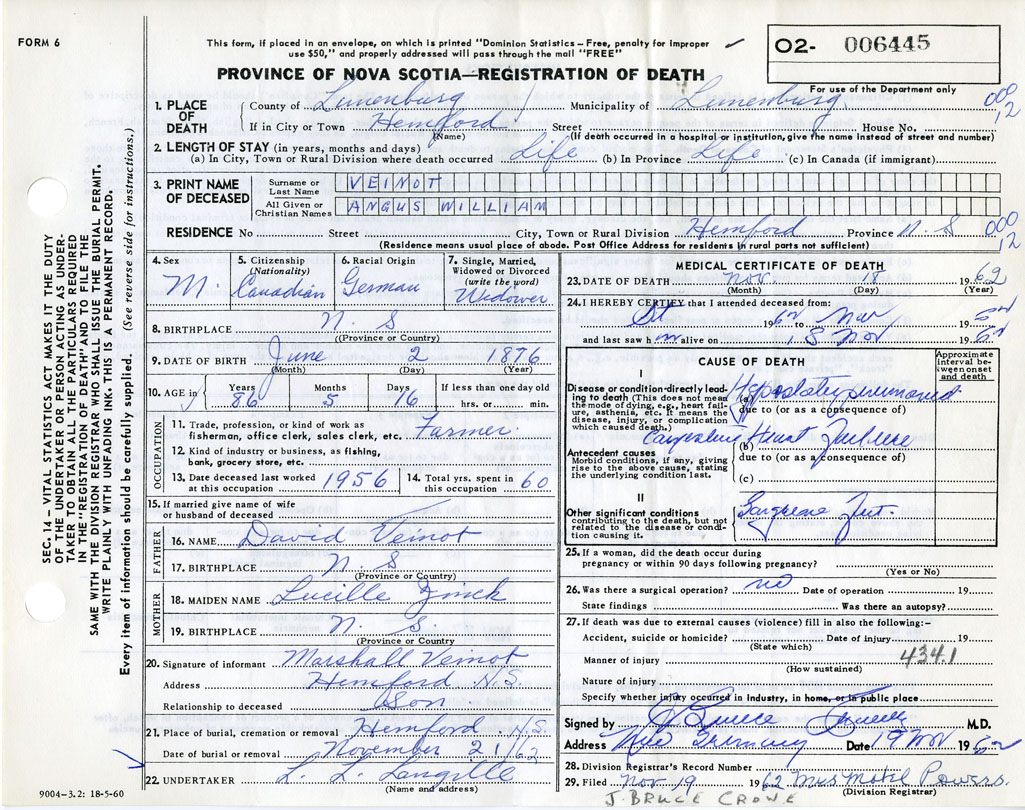 FORM 6
This form, if placed in an envelope, on which is printed "Dominion Statistics – Free, penalty for improper
use $50," and properly addressed will pass through the mail "FREE"
O2- 006445
For use of the Department only
PROVINCE OF NOVA SCOTIA—REGISTRATION OF DEATH
000
12
1. PLACE OF DEATH
County of Lunenburg Municipality of Lunenburg
If in City or Town Hemford Street House No.
(Name) (If death occurred in a hospital or institution, give the name instead of street and number)
2. LENGTH OF STAY (in years, months and days)
(a) In City, Town or Rural Division where death occurred Life (b) In Province Life (c) In Canada (if immigrant)
3. PRINT NAME OF DECEASED
Surname or Last Name VEINOT
All Given or Christian Names ANGUS WILLIAM
RESIDENCE No Street City, Town or Rural Division Hemford Province N. S
000
12
(Residence means usual place of abode. Post Office Address for residents in rural parts not sufficient)
4. Sex M.
5. Citizenship (Nationality) Canadian
6. Racial Origin German
7. Single, Married, Widowed or Divorced (write the word) Widower
8. BIRTHPLACE N. S
(Province or Country)
9. DATE OF BIRTH June 2 1876
(Month) (Day) (Year)
10. AGE in Years 86 Months 5 Days 16 If less than one day old hrs. or min.
OCCUPATION
11. Trade, profession, or kind of work as
fisherman, office clerk, sales clerk, etc. Farmer.
12. Kind of industry or business, as fishing,
bank, grocery store, etc.
13. Date deceased last worked at this occupation 1956
14. Total yrs. spent in this occupation 60
15. If married give name of wife
or husband of deceased
FATHER
16. NAME David Veinot
17. BIRTHPLACE N. S
(Province or Country)
MOTHER
18. MAIDEN NAME Lucille Zinck
19. BIRTHPLACE N. S.
(Province or Country)
20. Signature of informant Marshall Veinot
Address Hemford N.S.
Relationship to deceased Son
21. Place of burial, cremation or removal Hemford N.S.
Date of burial or removal November 21/62
22. UNDERTAKER L. L. Langille
(Name and address)
9004-3.2: 18-5-60
MEDICAL CERTIFICATE OF DEATH
23. DATE OF DEATH Nov. 18 1962
(Month) (Day) (Year)
24. I HEREBY CERTIFY that I attended deceased from:
1962 to Nov 19
and last saw h m alive on 18 Nov 1962
CAUSE OF DEATH
Approximate interval between onset and death
I
Disease or condition directly leading to death (This does not mean the mode of dying, e.g., heart failure, asthenia, etc. It means the disease, injury, or complication which caused death.)
(a)
due to (or as a consequence of)
Antecedent causes
Morbid conditions, if any, giving rise to the above cause, stating the underlying condition last.
(b) Heart
due to (or as a consequence of)
(c)
II
Other significant conditions
contributing to the death, but not related to the disease or condition causing it.
25. If a woman, did the death occur during
pregnancy or within 90 days following pregnancy?
(Yes or No)
26. Was there a surgical operation? no Date of operation 19
State findings Was there an autopsy?
27. If death was due to external causes (violence) fill in also the following:–
Accident, suicide or homicide? Date of injury 19
(State which)
Manner of injury 434.1
(How sustained)
Nature of injury
Specify whether injury occurred in industry, in home, or in public place
Signed by J Bruce Crowe M.D.
Address New Germany Date 19 Nov 1962
28. Division Registrar's Record Number
29. Filed Nov. 19 1962 Mrs Powers.
(Division Registrar)
J. BRUCE CROWE
SEC. 14 – VITAL STATISTICS ACT MAKES IT THE DUTY
OF THE UNDERTAKER OR PERSON ACTING AS UNDER-
TAKER TO OBTAIN ALL THE PARTICULARS REQUIRED
IN THE "REGISTRATION OF DEATH" AND TO FILE THE
SAME WITH THE DIVISION REGISTRAR WHO SHALL ISSUE THE BURIAL PERMIT.
WRITE PLAINLY WITH UNFADING INK. THIS IS A PERMANENT RECORD.
Every item of information should be carefully supplied. (See reverse side for instructions.)